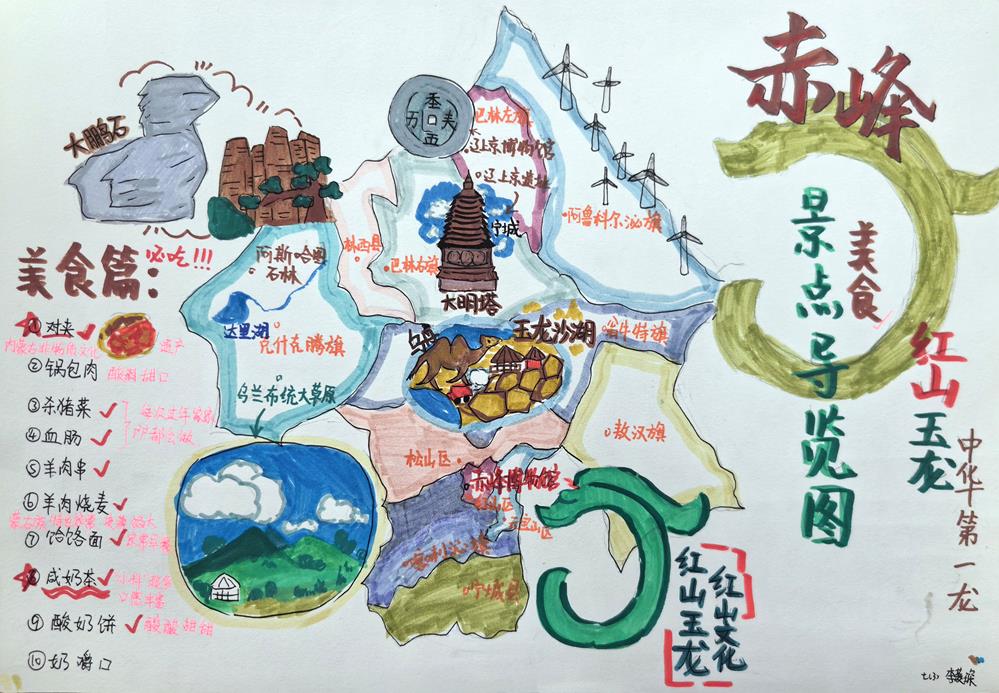 赤峰
景点导览图
美食
红山
玉龙
中华第一龙
大鹏石
美食篇:
必吃!!!
① 对夹
内蒙古非物质文化
遗产
② 锅包肉
酸甜口
③ 杀猪菜
④ 血肠
每次过年家家
户户都会做
⑤ 羊肉串
⑥ 羊肉烧麦
⑦ 饸饹面
⑧ 咸奶茶
⑨ 酸奶饼
酸酸甜甜
⑩ 奶嚼口
巴林左旗
辽上京博物馆
辽上京遗址
宁城
阿鲁科尔沁旗
林西县
巴林右旗
大明塔
阿斯哈图
石林
达里湖
克什克腾旗
乌兰布统大草原
玉龙沙湖
翁牛特旗
敖汉旗
松山区
赤峰博物馆
红山区
元宝山区
喀喇沁旗
宁城县
红山文化
红山玉龙